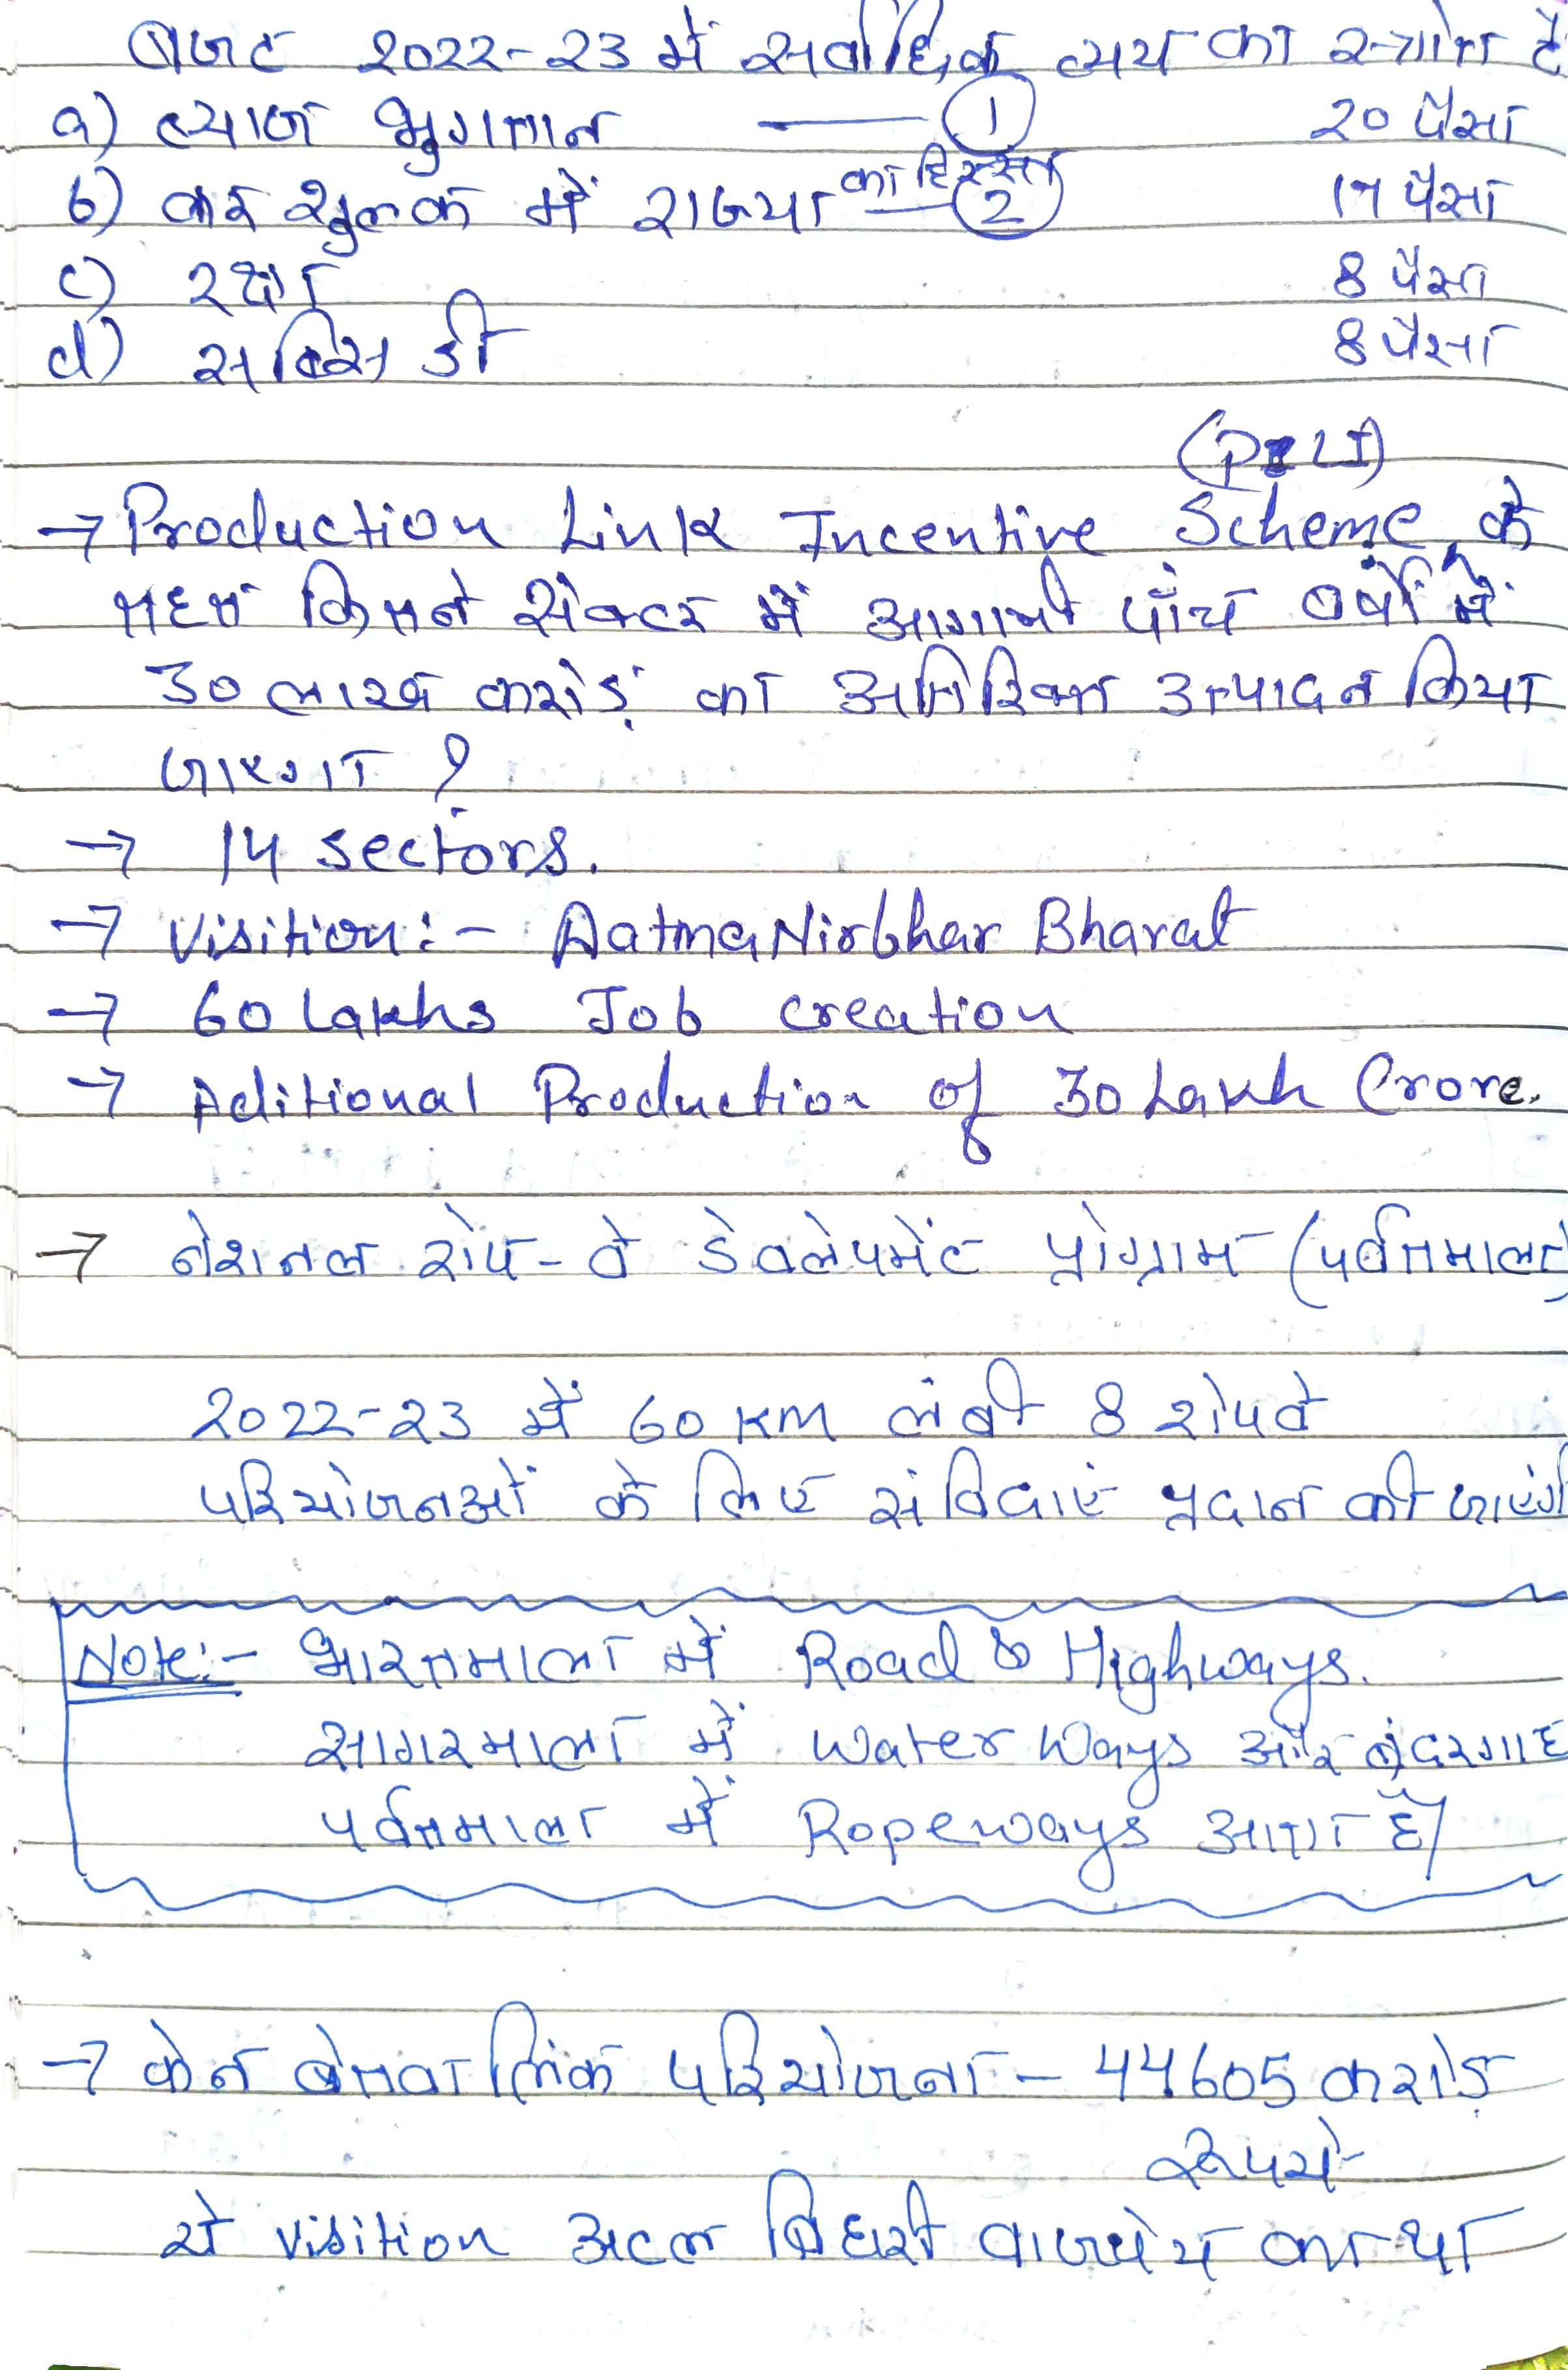 बजट 2022-23 में सर्वाधिक व्यय का स्त्रोत है
a) ब्याज भुगतान — 1 20 पैसा
b) कर शुल्क में राज्यो का हिस्सा — 2 17 पैसा
c) रक्षा 8 पैसा
d) सब्सिडी 8 पैसा
(PLI)
→ Production Link Incentive Scheme के
तहत कितने सेक्टर में आगामी पाँच वर्षों में
30 लाख करोड़ का अतिरिक्त उत्पादन किया
जाएगा ?
→ 14 sectors.
→ Visition :- AatmaNirbhar Bharat
→ 60 Lakhs Job creation
→ Aditional Production of 30 Lakh Crore.
→ नेशनल रोप-वे डेवलेपमेंट प्रोग्राम (पर्वतमाला)
2022-23 में 60 KM लंबी 8 रोपवे
परियोजनओं के लिए संविदाएं प्रदान की जाएंगी
Note:- भारतमाला में Road & Highways.
सागरमाला में Water Ways और बंदरगाह
पर्वतमाला में Ropeways आता है।
→ केन बेतवा लिंक परियोजना - 44605 करोड़
रूपये
ये Visition अटल बिहारी वाजपेय का था